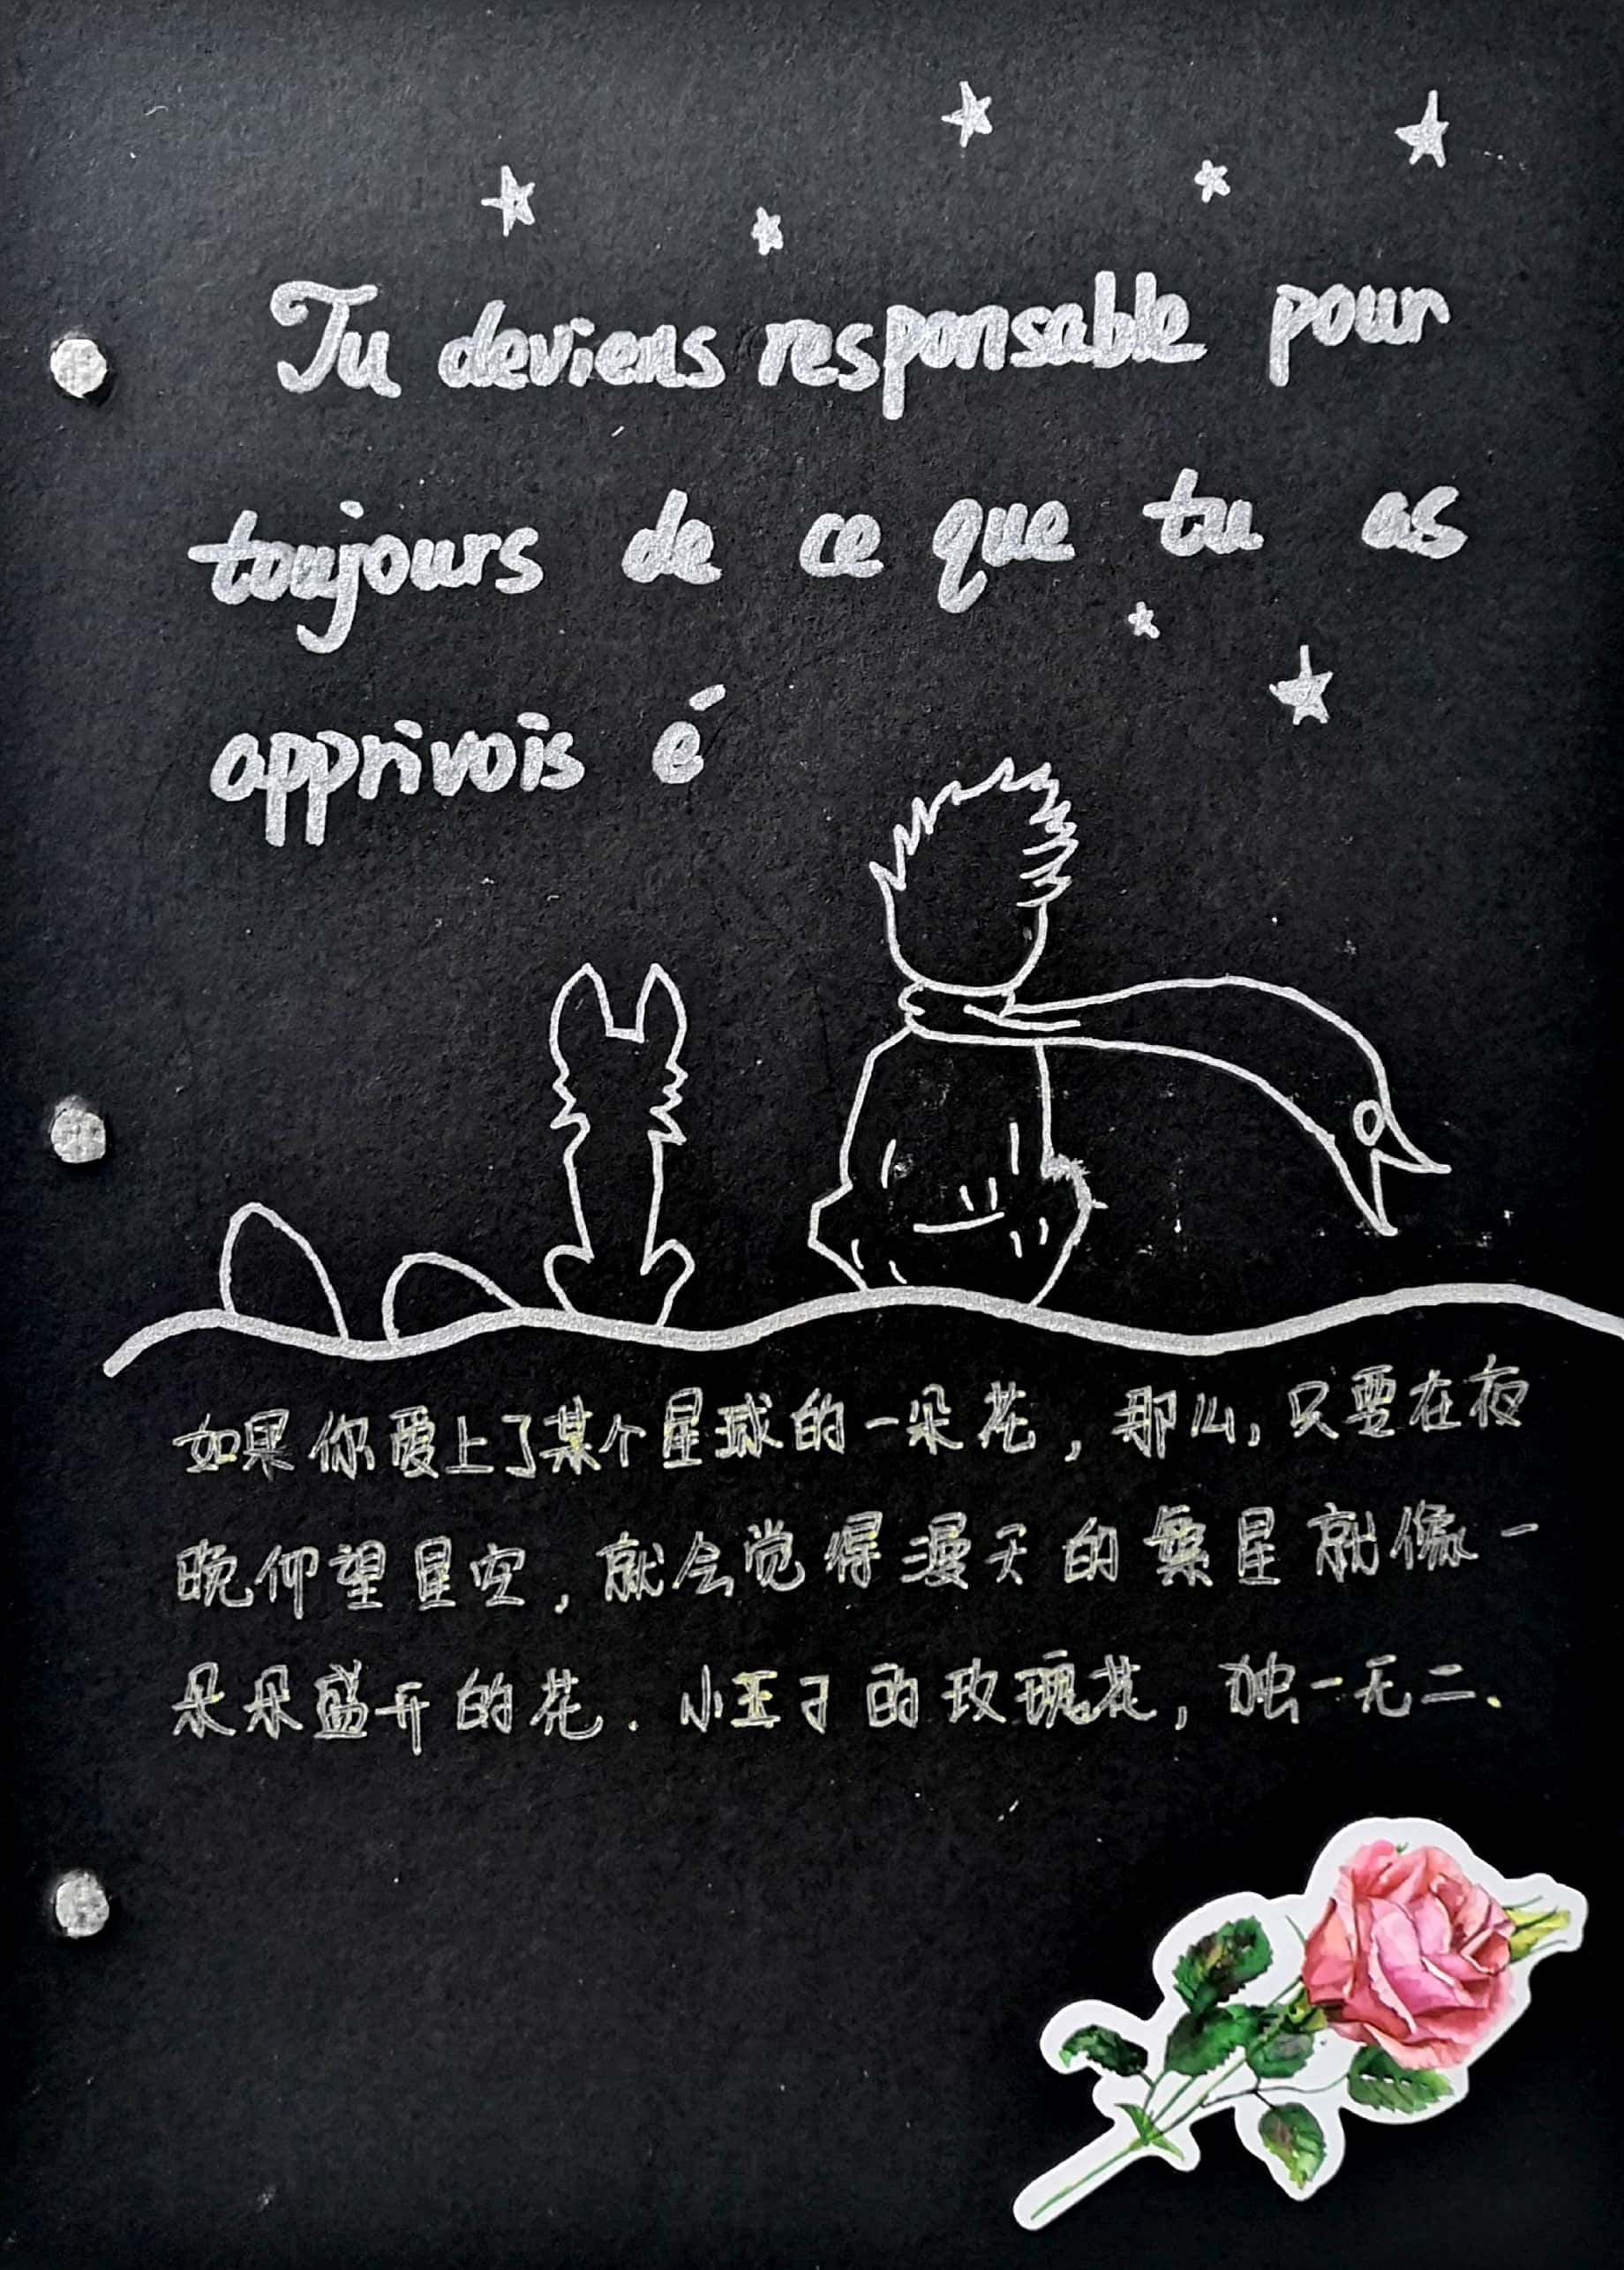 Tu deviens responsable pour
toujours de ce que tu as
apprivois é
如果你爱上了某个星球的一朵花，那么，只要在夜
晚仰望星空，就会觉得漫天的繁星就像一
朵朵盛开的花．小王子的玫瑰花，独一无二、